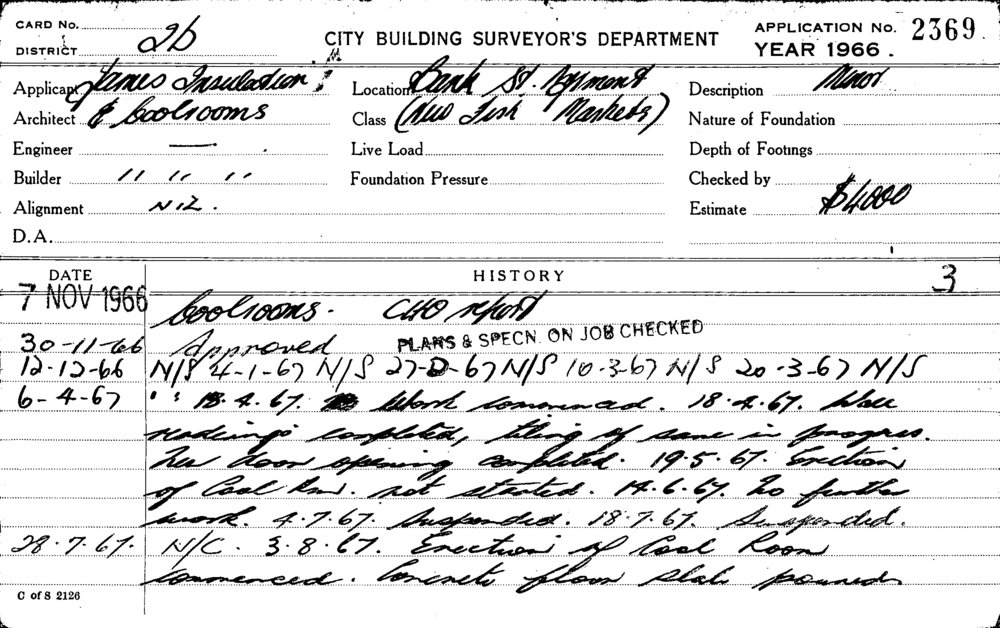 CARD No.
DISTRICT 2b
CITY BUILDING SURVEYOR'S DEPARTMENT
APPLICATION No. 2369
YEAR 1966.
Applicant James Insulation
Location Bank St. Pyrmont
Description Minor
Architect & Coolrooms
Class (New Fish Markets)
Nature of Foundation
Engineer —
Live Load
Depth of Footings
Builder " " "
Foundation Pressure
Checked by
Alignment NIL.
Estimate $4000
D.A.
DATE HISTORY 3
7 NOV 1966 Coolrooms. CHO report
30-11-66 Approved PLANS & SPECN. ON JOB CHECKED
12-12-66 N/S 4-1-67 N/S 27-2-67 N/S 10-3-67 N/S 20-3-67 N/S
6-4-67 " 18.4.67. Work commenced. 18.4.67. Wall
completed, tiling of same in progres.
New door opening completed. 19.5.67. Erection
of Cool Rm. not started. 14.6.67. No further
work. 4.7.67. Suspended. 18.7.67. Suspended.
28.7.67. N/C. 3.8.67. Erection of Cool Room
commenced. Concrete floor slab poured
C of S 2126